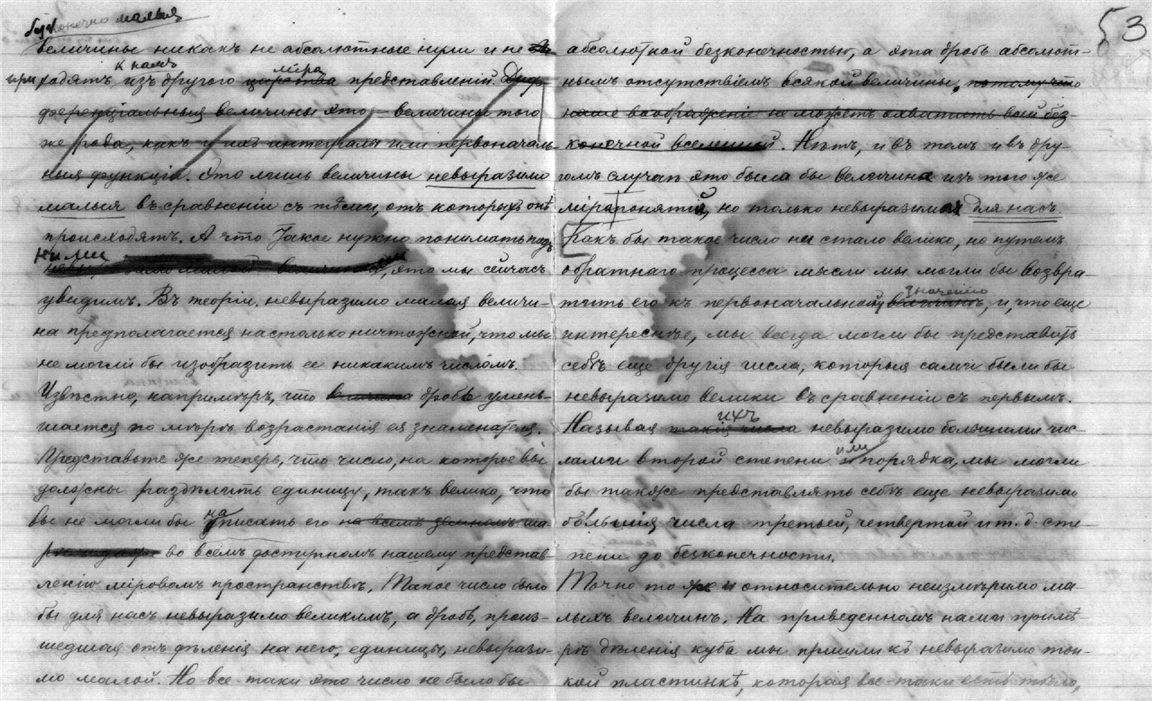 безконечно малыя
величины никакъ не абсолютные нули и не
приходятъ къ намъ изъ другого царства міра представленій. Диф-
ференціальныя величины это – величины того
же рода, какъ и ихъ интегралъ или первоначаль-
ныя функціи. Это лишь величины невыразимо
малыя въ сравненіи съ тѣми, отъ которыхъ онѣ
происходятъ. А что такое нужно понимать подъ
ними величинами, это мы сейчасъ
увидимъ. Въ теоріи, невыразимо малая величи-
на предполагается настолько ничтожной, что мы
не могли бы изобразить ее никакимъ числомъ.
Извѣстно, напримѣръ, что дробь умень-
шается по мѣрѣ возрастанія ея знаменателя.
Представьте же теперь, что число, на которое вы
должны раздѣлить единицу, такъ велико, что
вы не могли бы написать его на всемъ земномъ ша-
во всемъ доступномъ нашему представ-
ленію міровомъ пространствѣ. Такое число было
бы для насъ невыразимо великимъ, а дробь, проис-
шедшая отъ дѣленія на него, единицы, невырази-
мо малой. Но все-таки это число не было бы
53
абсолютной безконечностью, а эта дробь абсолют-
нымъ отсутствіемъ всякой величины, потому что
наше воображеніе не можетъ охватить всей без-
конечной вселенной. Нѣтъ, и въ томъ и въ дру-
гомъ случаѣ это была бы величина изъ того же
міропонятій, но только невыразимая для насъ
Какъ бы такое число ни стало велико, но путемъ
обратнаго процесса мысли мы могли бы возвра-
тить его къ первоначальному значенію, и, что еще
интереснѣе, мы всегда могли бы представить
себѣ еще другія числа, которыя сами были бы
невыразимо велики въ сравненіи съ первымъ.
Называя такія числа ихъ невыразимо большими чис-
лами второй степени или порядка, мы могли
бы также представлять себѣ еще невыразимо
большія числа третьей, четвертой и т. д. сте-
пени до безконечности.
Точно то же и относительно неизмѣримо ма-
лыхъ величинъ. На приведенномъ нами примѣ-
рѣ дѣленія куба мы пришли къ невыразимо тон-
кой пластинкѣ, которая все-таки есть тѣло,